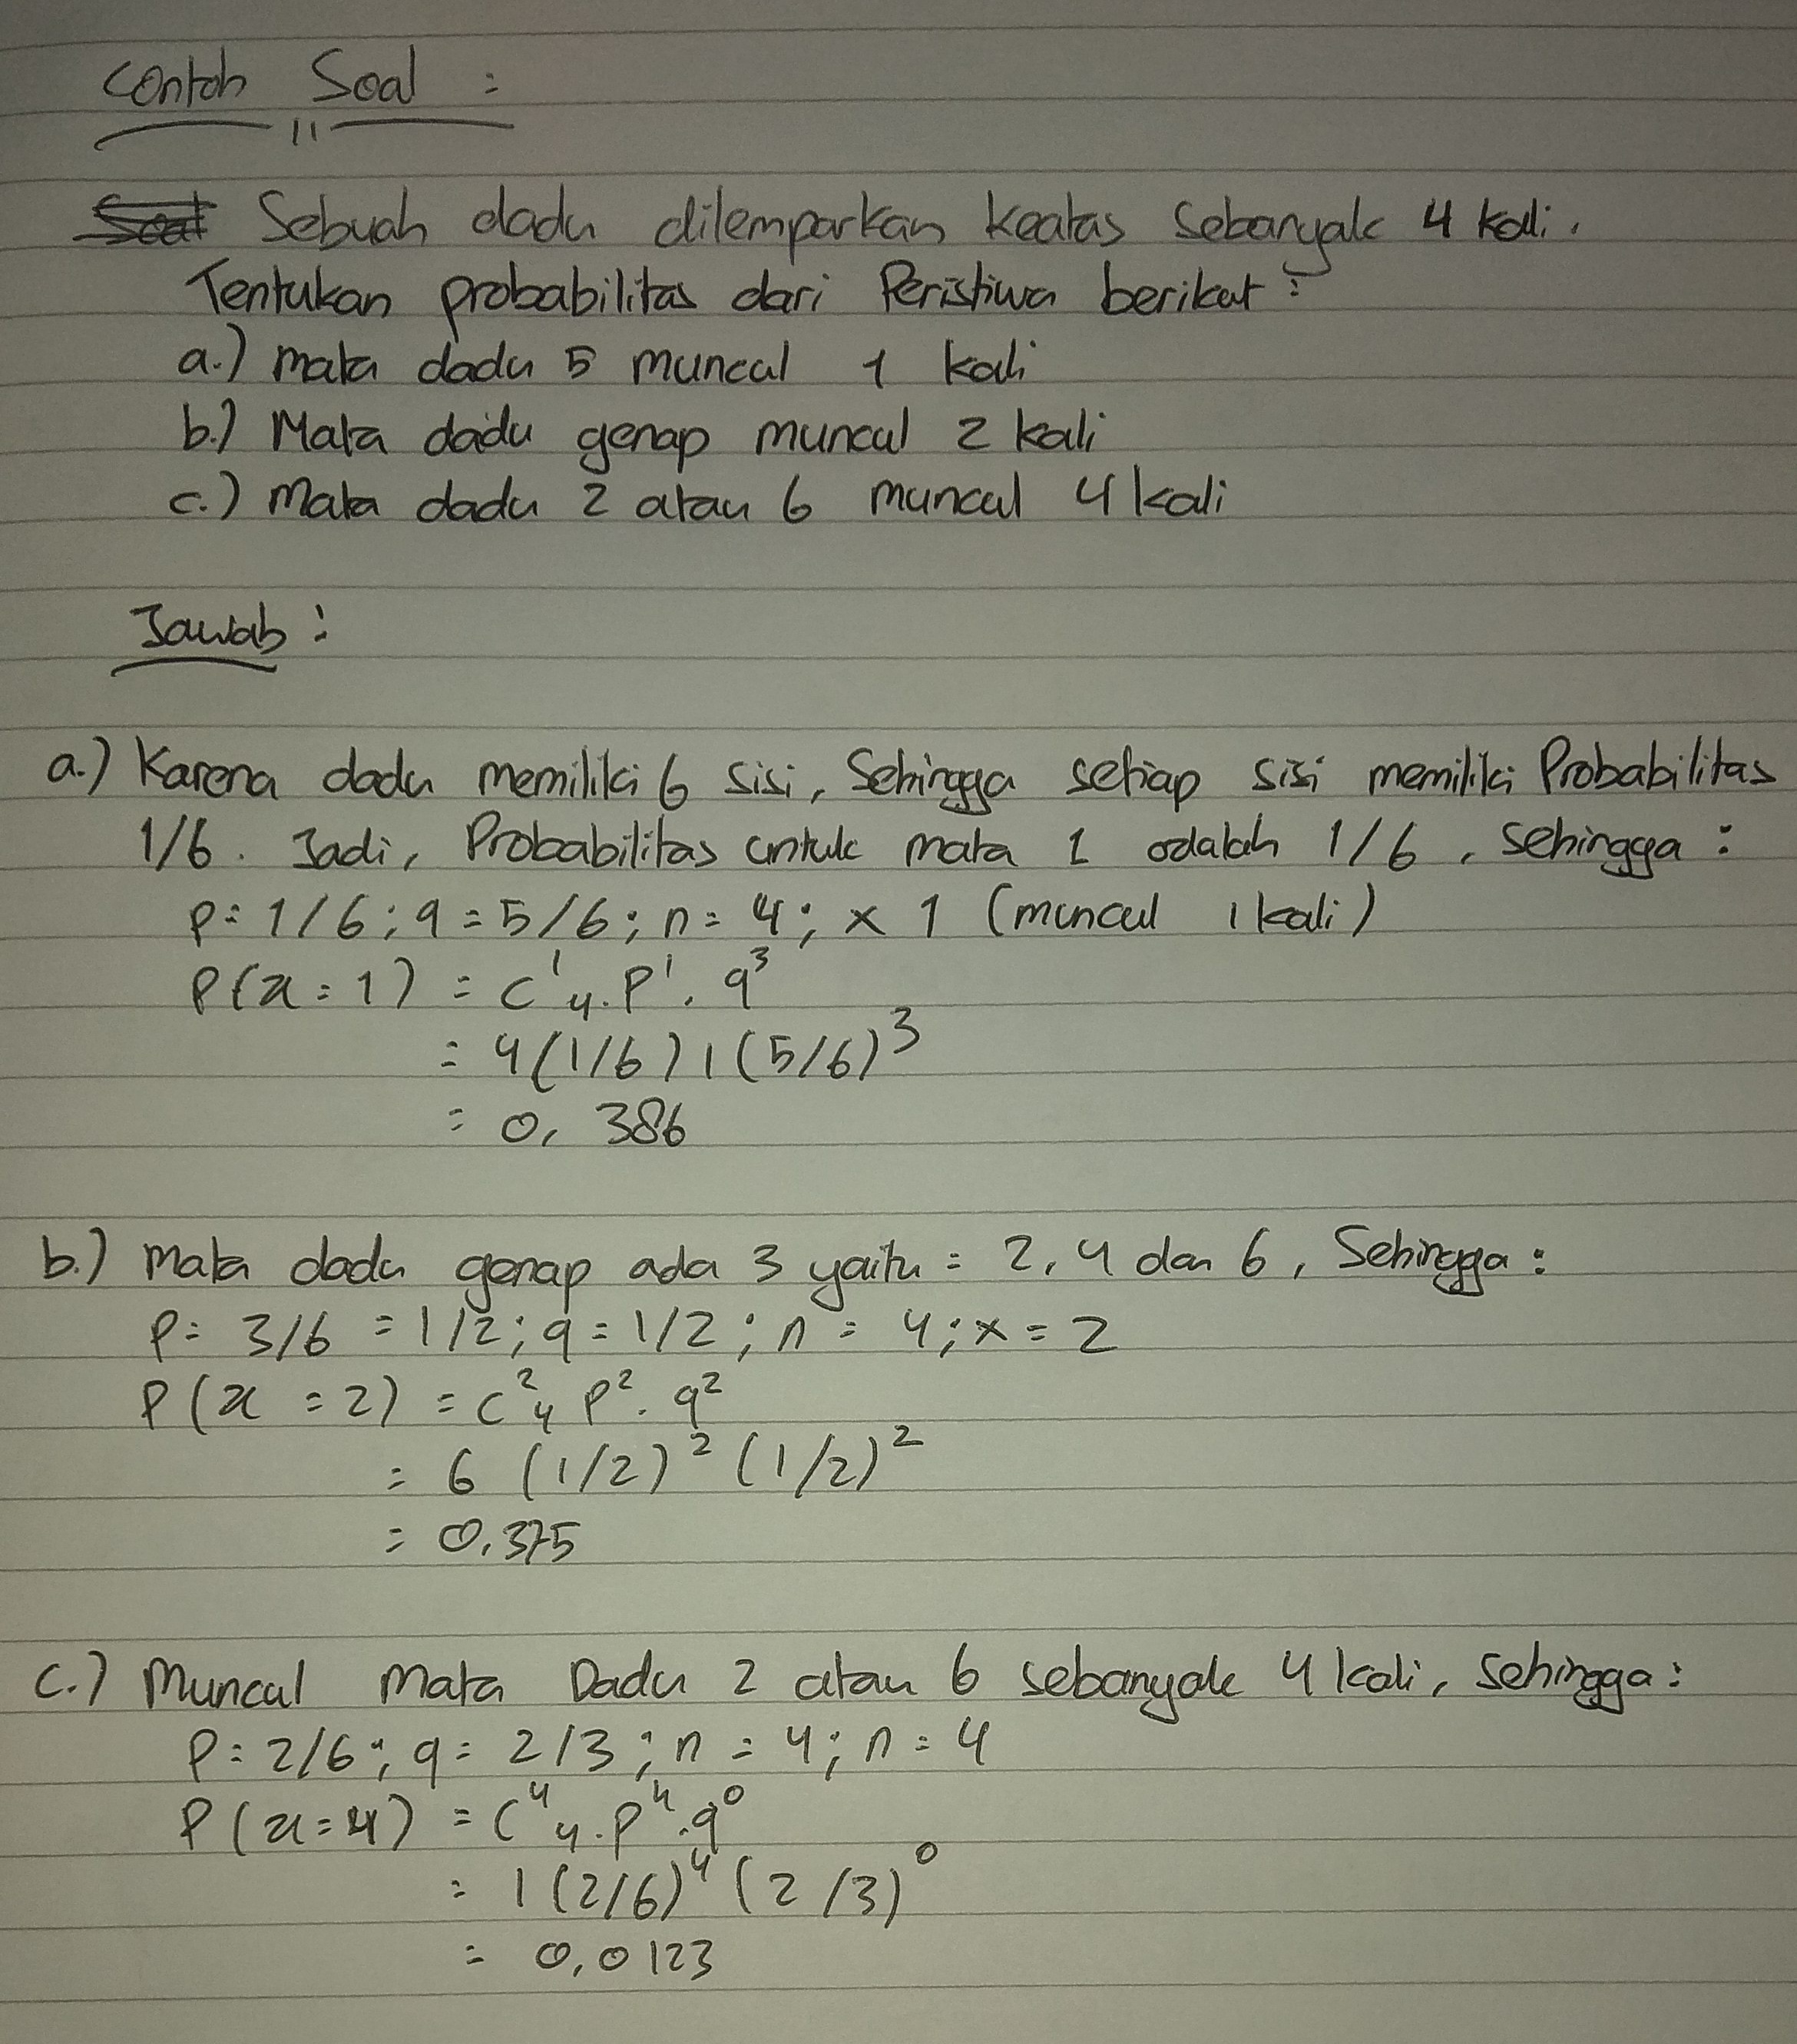 Contoh Soal :
Sebuah dadu dilemparkan keatas sebanyak 4 kali.
Tentukan probabilitas dari Peristiwa berikut :
a.) mata dadu 5 muncul 1 kali
b.) Mata dadu genap muncul 2 kali
c.) Mata dadu 2 atau 6 muncul 4 kali
Jawab :
a.) Karena dadu memiliki 6 sisi, Sehingga setiap sisi memiliki Probabilitas
1/6. Jadi, Probabilitas untuk mata 1 adalah 1/6, sehingga :
P = 1/6 ; q = 5/6 ; n = 4 ; x 1 (muncul 1 kali)
P(x = 1) = C¹₄. P¹. q³
= 4(1/6) 1 (5/6)³
= 0,386
b.) Mata dadu genap ada 3 yaitu = 2, 4 dan 6, Sehingga :
P = 3/6 = 1/2 ; q = 1/2 ; n = 4 ; x = 2
P(x = 2) = C²₄ P². q²
= 6 (1/2)² (1/2)²
= 0,375
C.) Muncul Mata Dadu 2 atau 6 sebanyak 4 kali, sehingga :
P = 2/6 ; q = 2/3 ; n = 4 ; n = 4
P(x = 4) = C⁴₄. P⁴. q⁰
= 1 (2/6)⁴ (2/3)⁰
= 0,0123